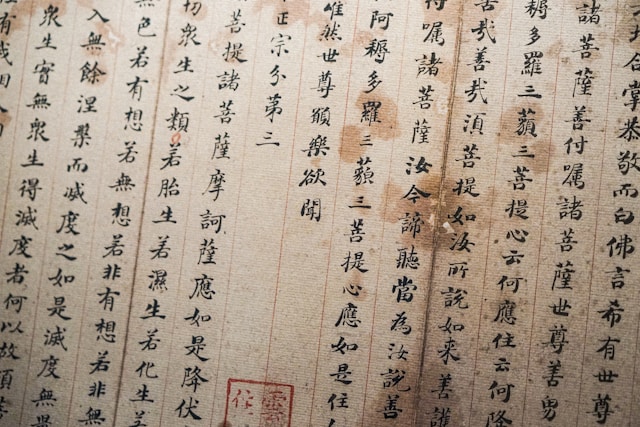 地合掌恭敬而白佛言希有世尊
諸菩薩善付嘱諸菩薩世尊善男
耨多羅三藐三菩提心云何應住云何降
哉善哉湏菩提如汝所說如來善護
付嘱諸菩薩汝今諦聽當為汝說善
阿耨多羅三藐三菩提心應如是住
唯然世尊願樂欲聞
正宗分第三
菩提諸菩薩摩訶薩應如是降伏
切衆生之類若胎生若濕生若化生若
無色若有想若無想若非有想若非無
入無餘涅槃而滅度之如是滅度無量
衆生實無衆生得滅度者何以故湏菩
有我相人